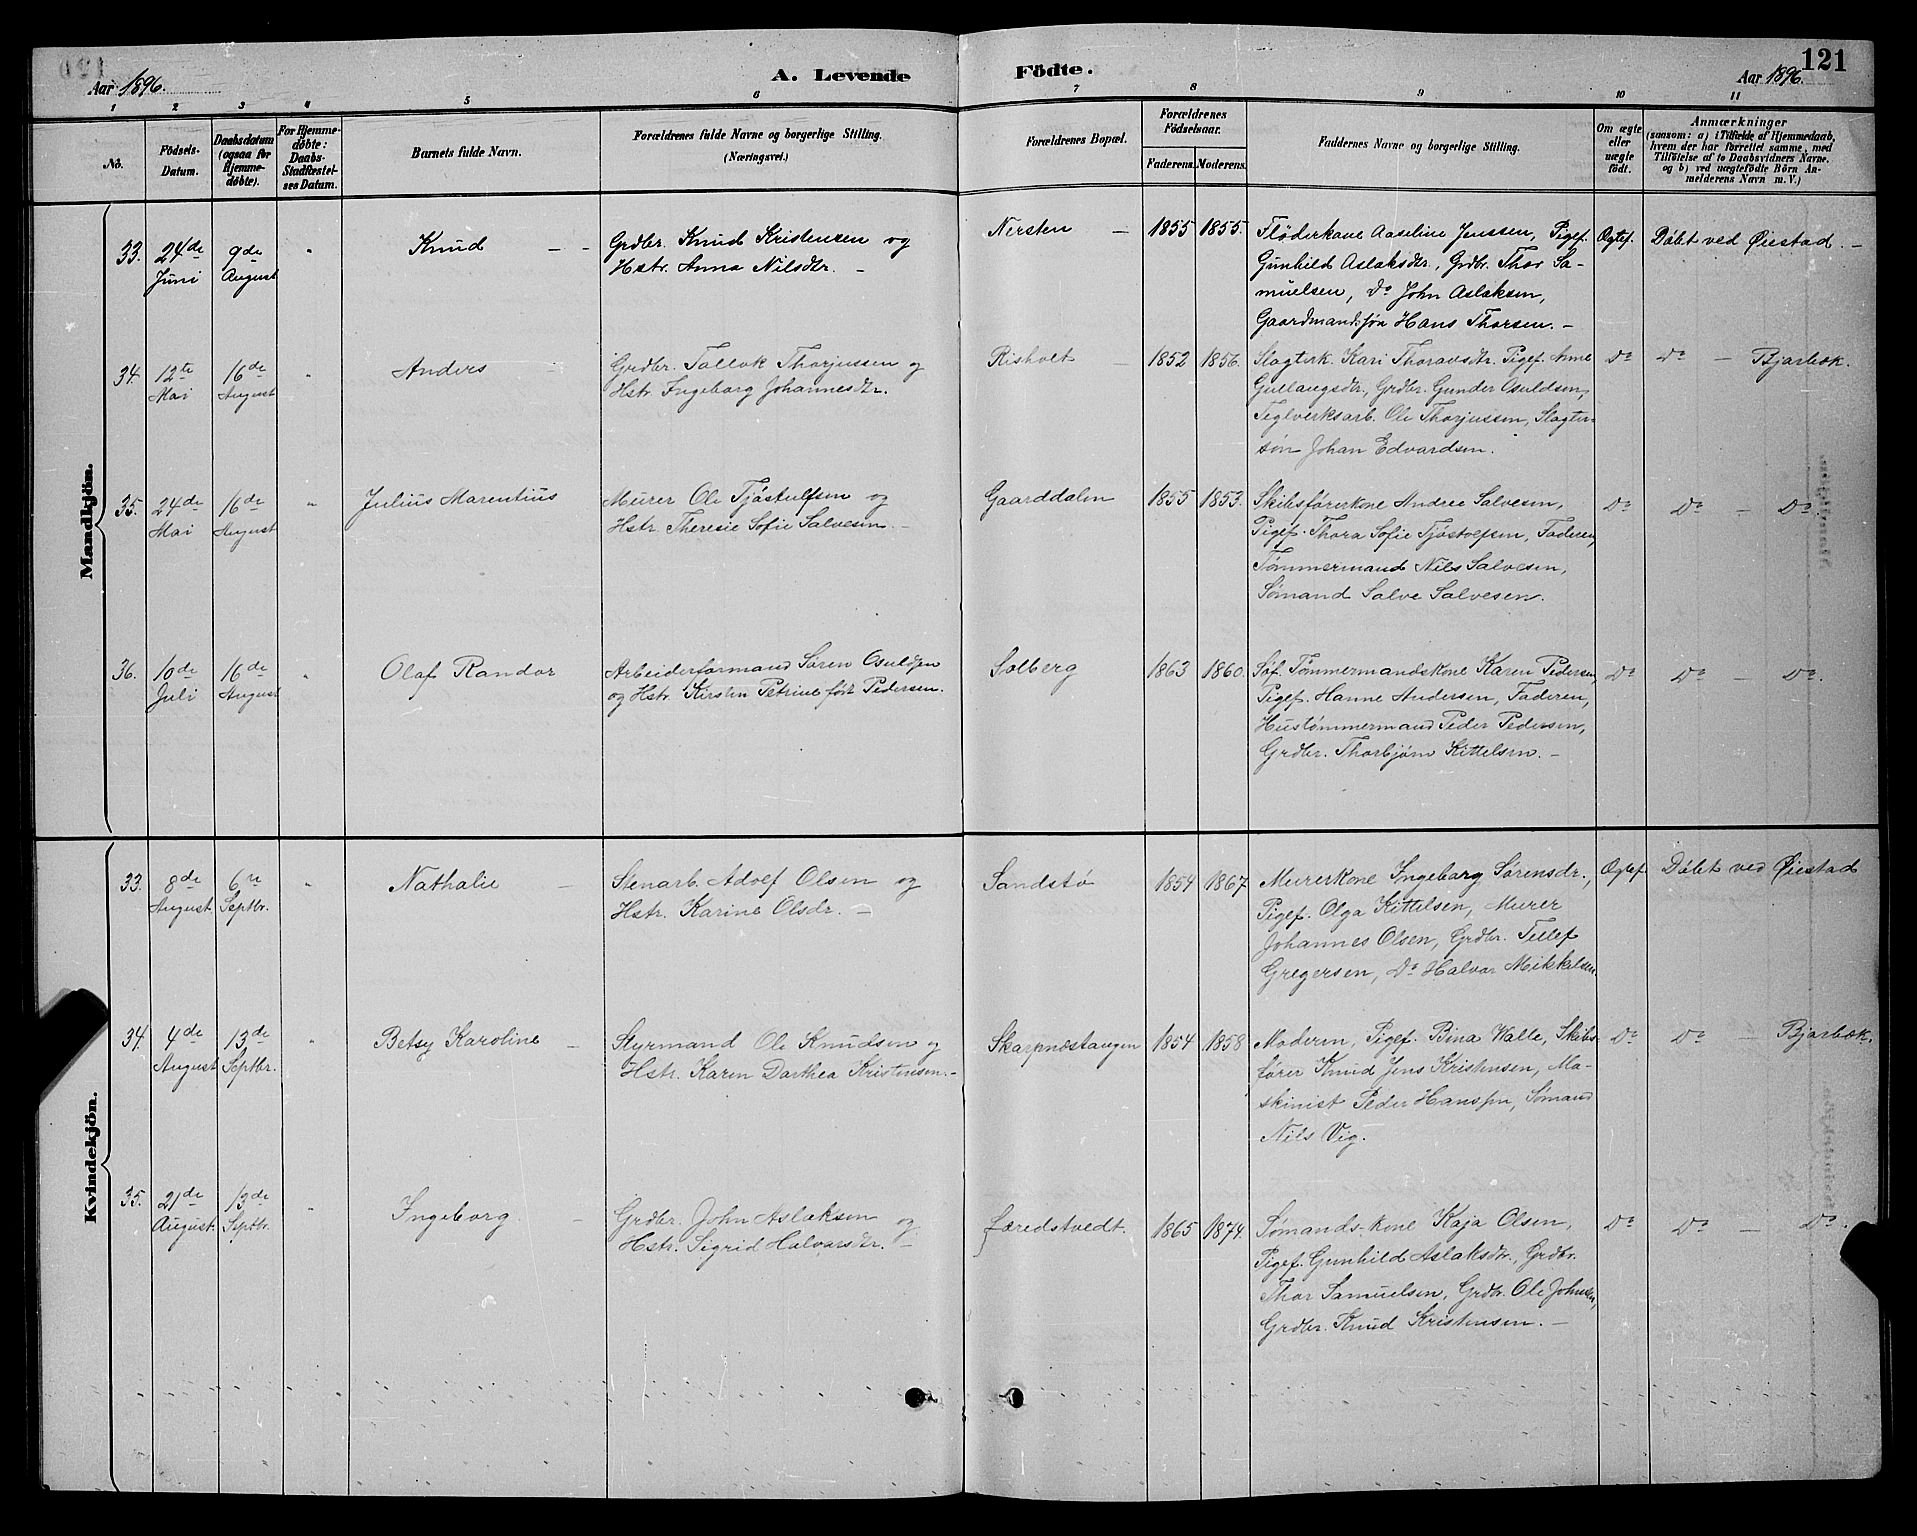 121
Aar 1896. A. Levende Födte. Aar 1896.
1 2 3 4 5 6 7 8 9 10 11
No.
Födsels-
Datum.
Daabsdatum
(ogsaa for
Hjemme-
döbte).
For Hjemme-
döbte:
Daabs-
Stadfæstel-
ses Datum.
Barnets fulde Navn.
Forældrenes fulde Navne og borgerlige Stilling.
(Næringsvei.)
Forældrenes Bopæl.
Forældrenes
Födselsaar.
Faderens. Moderens.
Faddernes Navne og borgerlige Stilling.
Om ægte
eller
uægte
födt.
Anmærkninger
(saasom: a) i Tilfælde af Hjemmedaab,
hvem der har forrettet samme, med
Tilföielse af to Daabsvidners Navne.
og b) ved uægtefödte Börn An-
melderens Navn m. V.)
Mandkjön.
33. 24de Juni 9de August " Knud - -
Grdbr. Knud Kristensen og
Hstr. Anna Nilsdtr. -
Nersten - 1855 1855.
Fløderkone Aaseline Jenssen, Pigef.
Gunhild Aslaksdtr., Grdbr. Thor Sa-
muelsen, Do John Aslaksen,
Gaardmandssøn Hans Thorsen. -
Ægtef. Døbt ved Øiestad. -
34. 12te Mai 16de August " Anders -
Grdbr. Tallak Thorjussen og
Hstr. Ingeborg Johannesdtr.
Risholt - 1852 1856.
Slagterk. Kari Thoravsdtr. Pigef. Anne
Gullaugsdtr., Grdbr. Gunder Osuldsen,
Teglverksarb. Ole Thorjussen, Slagter-
søn Johan Edvardsen.
Do Do - Bjorbæk.
35. 24de Mai 16de August " Julius Marentius
Murer Ole Tjøstulfsen og
Hstr. Theresie Sofie Salvesen. -
Gaarddalen 1855 1853.
Skibsførerkone Andrea Salvesen,
Pigef. Thora Sofie Tjøstolfsen, Faderen,
Tømmermand Nils Salvesen,
Sømand Salve Salvesen.
Do Do - Do.
36. 10de Juli 16de August " Olaf Randor
Arbeiderformand Søren Osuldsen
og Hstr. Kirsten Petrine født Pedersen.
Solberg 1863 1860.
Søf. Tømmermandskone Karen Pedersen,
Pigef. Hanne Andersen, Faderen,
Hustømmermand Peder Pedersen,
Grdbr. Thorbjørn Kittelsen. -
Do Do - Do.
Kvindekjön.
33. 8de August 6te Septbr. " Nathalie -
Stenarb. Adolf Olsen og
Hstr. Karine Olsdr. -
Sandstø 1854 1867
Murerkone Ingeborg Sørensdr.,
Pigef. Olga Kittelsen, Murer
Johannes Olsen, Grdbr. Tellef
Gregersen, Do Halvor Mikkelsen
Ægtef. Døbt ved Øiestad
34. 4de August 13de Septbr. " Betsy Karoline -
Styrmand Ole Knudsen og
Hstr. Karen Dorthea Kristensen. -
Skarpnæstangen 1854 1858
Moderen, Pigef. Bina Walle, Skibs-
fører Knud Jens Kristensen, Ma-
skinist Peder Hanssen, Sømand
Nils Vig.
Do Do - Bjorbæk.
35. 21de August. 13de Septbr. " Ingeborg -
Grdbr. John Aslaksen og
Hstr. Sigrid Halvorsdtr. -
Færedstvedt. 1865 1874.
Sømands-kone Kaja Olsen,
Pigef. Gunhild Aslaksdtr., Grdbr.
Thor Samuelsen, Grdbr. Ole Johnsen,
Grdbr. Knud Kristensen. -
Do Do - Do.